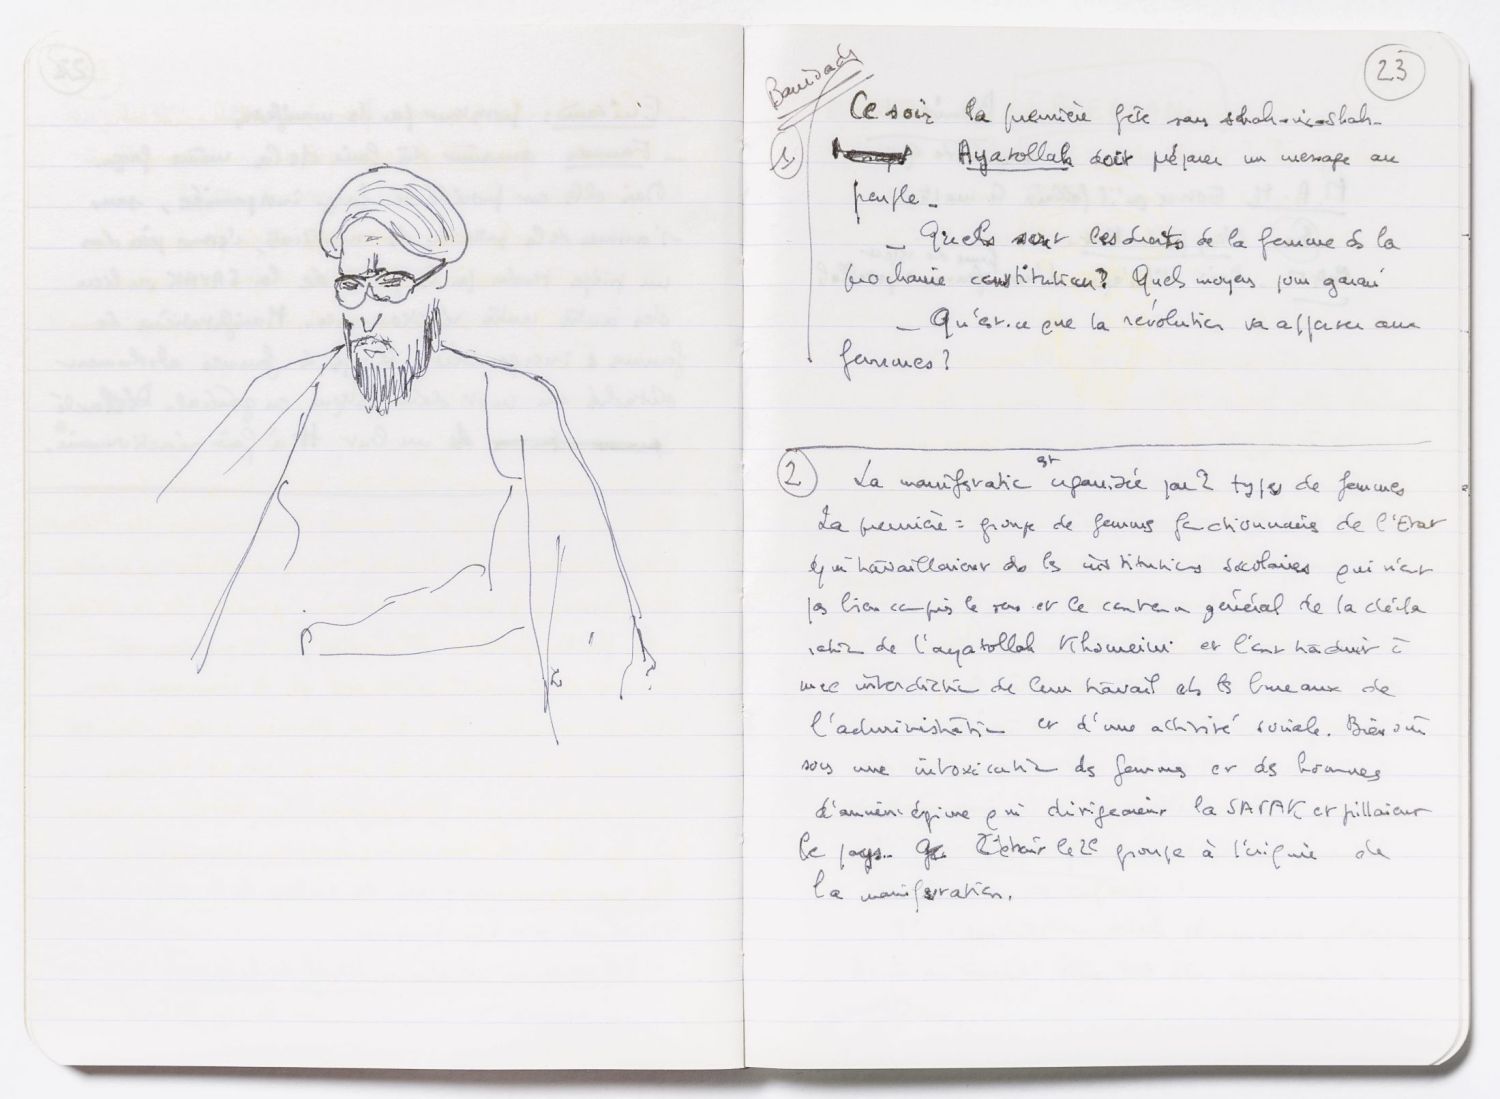 23
①
Ce soir la première fête sans
Ayatollah doit préparer un message au
peuple_
_ Quels sont les droits de la femme ds la
prochaine constitution? Quels moyens pour
_ Qu'est-ce que la révolution va apporter aux
femmes?
② La manifestatio est organisée par 2 types de femmes
La première = groupe de femmes fonctionnaires de l'Etat
qui travaillaient ds ls institutions scolaires qui n'ont
pas bien compris le sens et le contenu général de la décla
ration de l'ayatollah Khomeini et l'ont traduit à
une interdiction de leur travail ds ls bureaux de
l'administration et d'une activité sociale.
sous une intoxication ds femmes et ds hommes
qui dirigeaient la SAVAK et pillaient
le pays. C'était le 2e groupe à l'origine de
la manifestation.